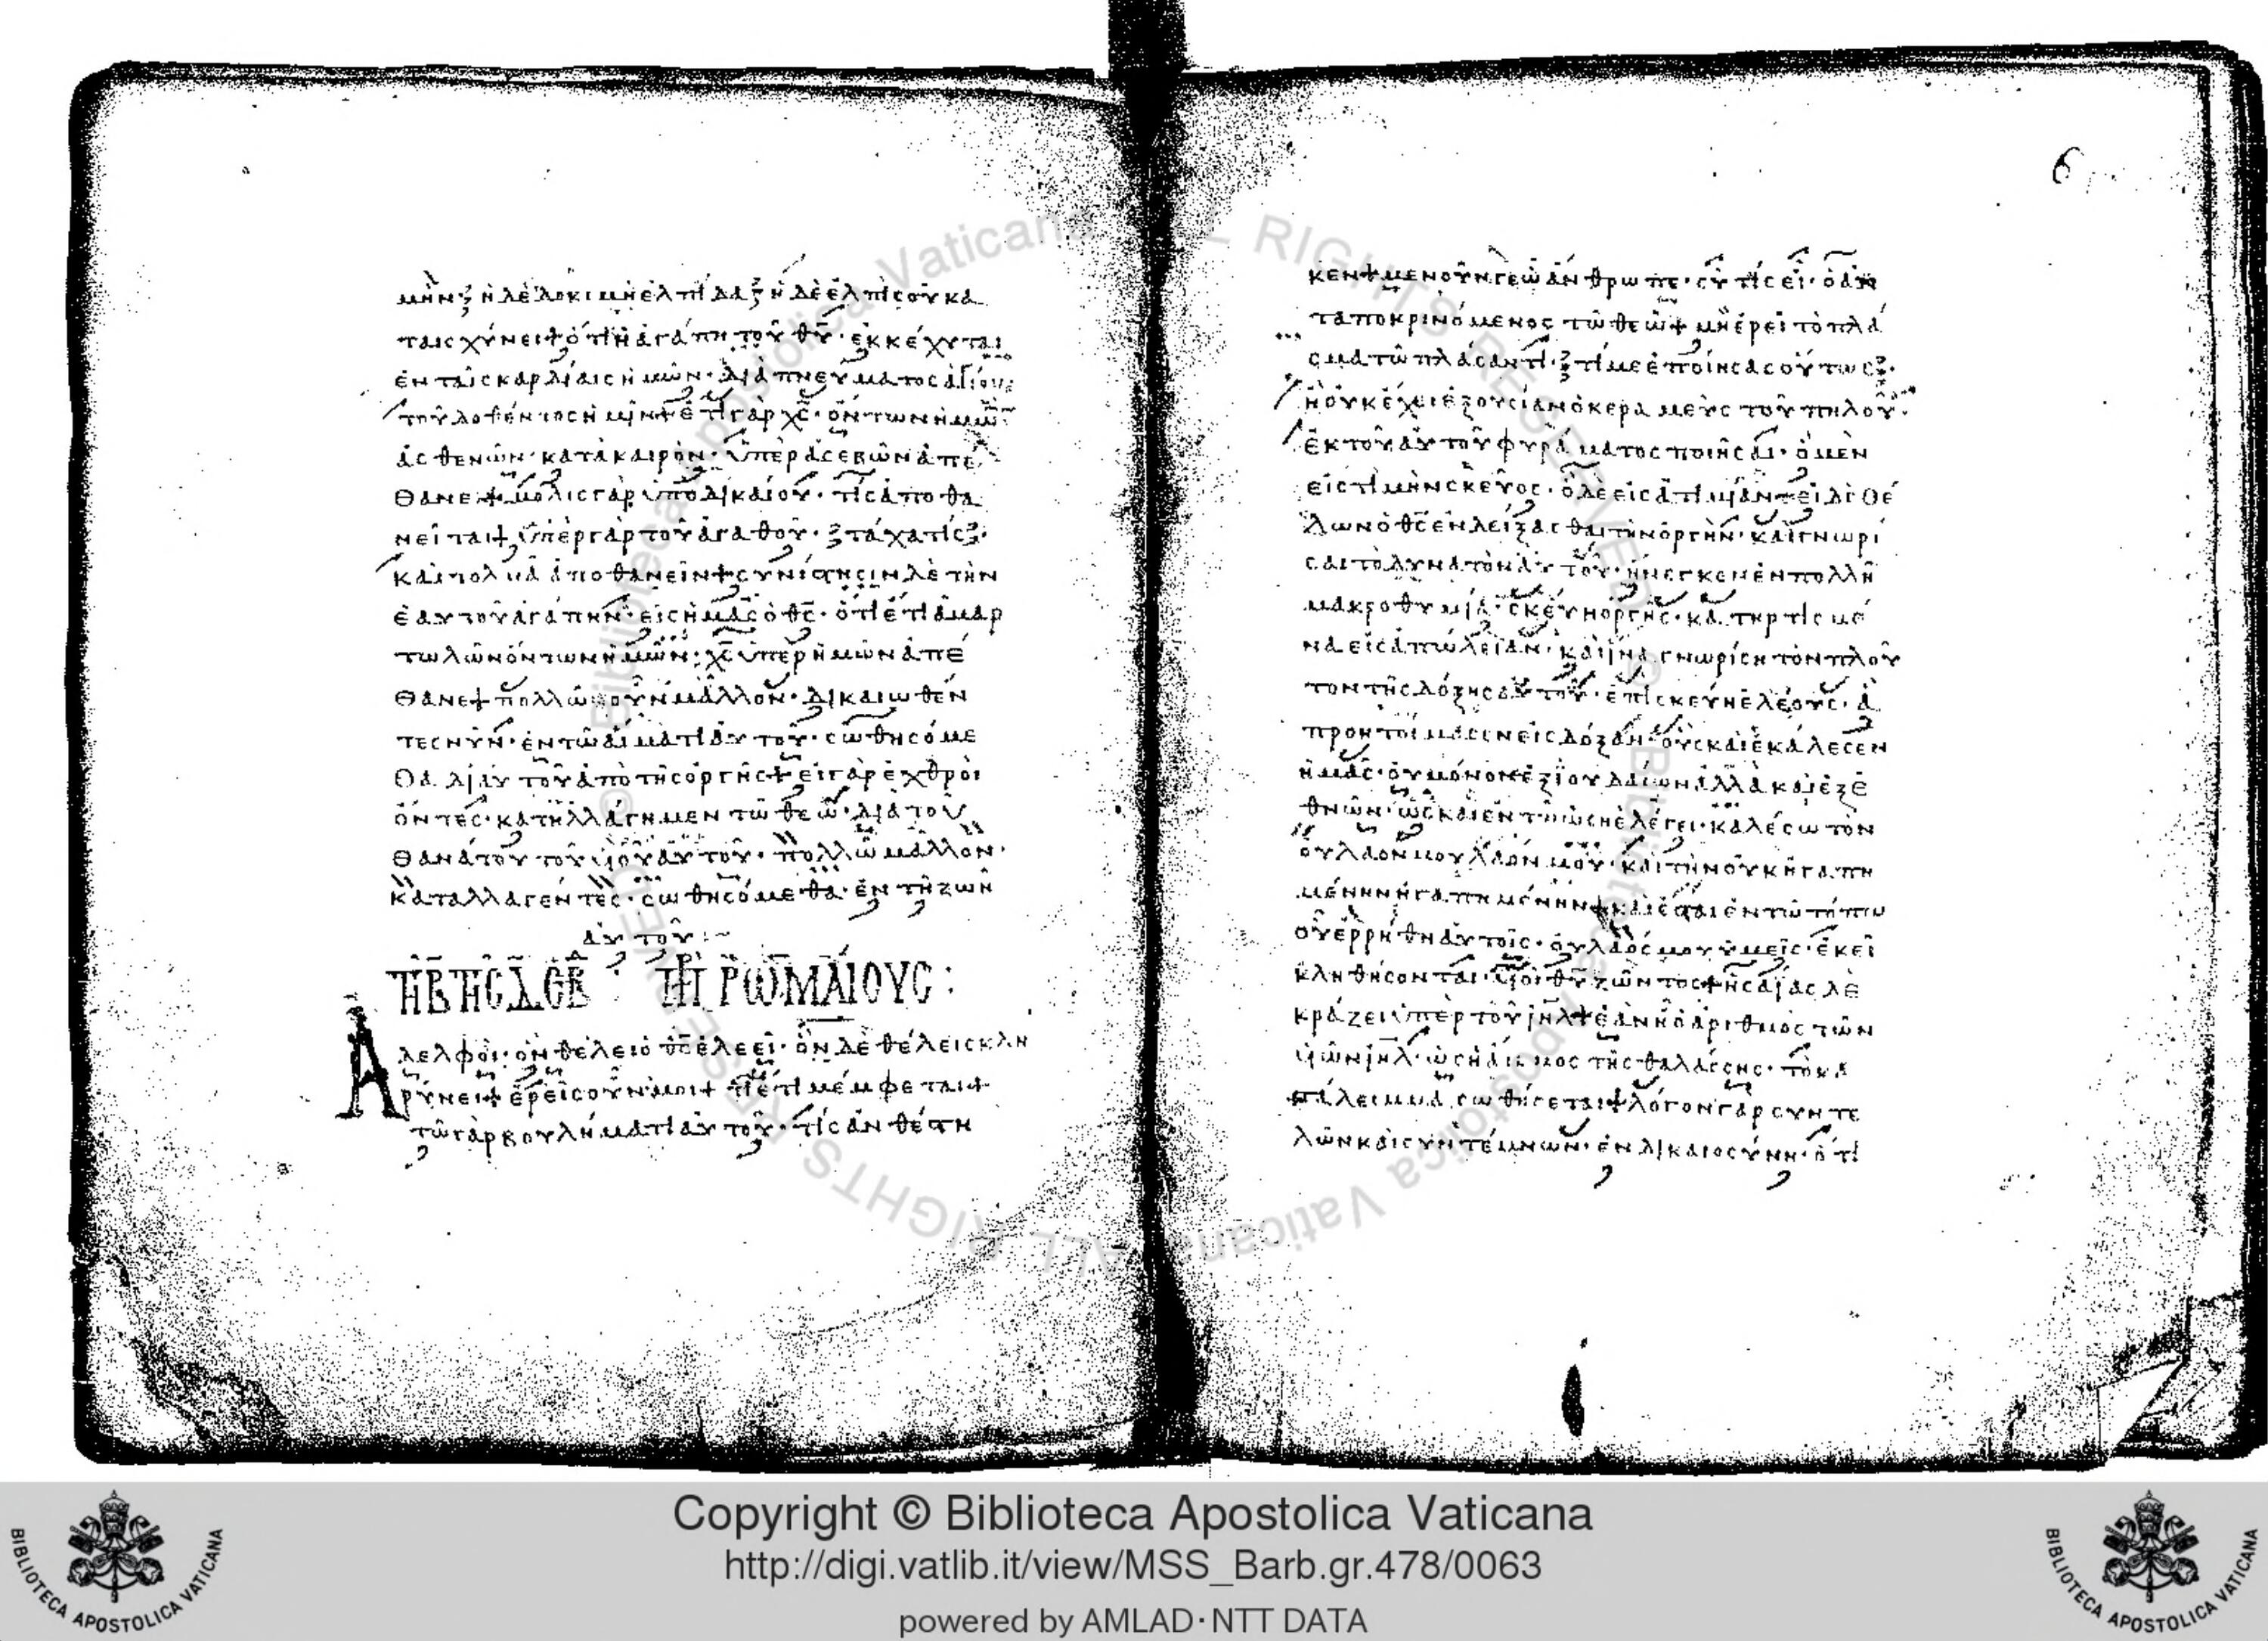 μὴν ἡ δὲ δοκιμὴ ἐλπίδα ἡ δὲ ἐλπὶς οὐ κα
ταισχύνει ὅτι ἡ ἀγάπη τοῦ θυ ἐκκέχυται
ἐν ταῖς καρδίαις ἡμῶν· διὰ πνεύματος ἁγίου
τοῦ δοθέντος ἡμῖν ἔτι γὰρ χς· ὄντων ἡμῶν
ἀσθενῶν· κατὰ καιρὸν· ὑπὲρ ἀσεβῶν ἀπέ
θανε μόλις γὰρ ὑπὸ δικαίου· τὶς ἀποθα
νεῖται ὑπὲρ γὰρ τοῦ ἀγαθοῦ· τάχα τίς
καὶ τολμᾶ ἀποθανεῖν συνίστησιν δὲ τὴν
ἑαυτοῦ ἀγάπην· εἰς ἡμᾶς ὁ θς· ὅτι ἔτι ἁμαρ
τωλῶν ὄντων ἡμῶν· χς ὑπὲρ ἡμῶν ἀπέ
θανε πολλῶ οὖν μᾶλλον· δικαιωθέν
τες νῦν· ἐν τῶ αἵματι αὐτοῦ· σωθησόμε
θα δι' αὐτοῦ ἀπὸ τῆς ὀργῆς εἰ γὰρ ἐχθροὶ
ὄντες· κατηλλάγημεν τῶ θεῶ· διὰ τοῦ
θανάτου τοῦ υἱοῦ αὐτοῦ· πολλῶ μᾶλλον·
καταλλαγέντες· σωθησόμεθα· ἐν τῆ ζωῆ
αὐτοῦ:~
ΡΩΜΑΙΟΥΣ:
Ἀδελφοὶ· ὃν θέλει ὁ θς ἐλεεῖ· ὃν δὲ θέλει σκλη
ρύνει ἐρεῖς οὖν μοι τί ἔτι μέμφεται
τῶ γὰρ βουλήματι αὐτοῦ· τίς ἀνθέστη
6
κεν μενοῦνγε ὦ ἄνθρωπε· σὺ τίς εἶ· ὁ ἀν
ταποκρινόμενος τῶ θεῶ μὴ ἐρεῖ τὸ πλά
σμα τῶ πλάσαντι· τί με ἐποίησας οὕτως
ἢ οὐκ ἔχει ἐξουσίαν ὁ κεραμεὺς τοῦ πηλοῦ·
ἐκ τοῦ αὐτοῦ φυράματος ποιῆσαι· ὃ μὲν
εἰς τιμὴν σκεῦος· ὃ δὲ εἰς ἀτιμίαν εἰ δὲ θέ
λων ὁ θς ἐνδείξασθαι τὴν ὀργὴν· καὶ γνωρί
σαι τὸ δυνατὸν αὐτοῦ· ἤνεγκεν ἐν πολλῆ
μακροθυμία· σκεύη ὀργῆς· κατηρτισμέ
να εἰς ἀπώλειαν· καὶ ἵνα γνωρίση τὸν πλοῦ
τον τῆς δόξης αὐτοῦ· ἐπὶ σκεύη ἐλέους· ἃ
προητοίμασεν εἰς δόξαν· οὓς καὶ ἐκάλεσεν
ἡμᾶς· οὐ μόνον ἐξ ἰουδαίων ἀλλὰ καὶ ἐξ ἐ
θνῶν· ὡς καὶ ἐν τῶ ὡσηὲ λέγει· καλέσω τὸν
οὐ λαόν μου λαόν μου· καὶ τὴν οὐκ ἠγαπη
μένην ἠγαπημένην καὶ ἔσται ἐν τῶ τόπω
οὗ ἐρρήθη αὐτοῖς· οὐ λαός μου ὑμεῖς· ἐκεῖ
κληθήσονται· υἱοὶ θυ ζῶντος ἡσαΐας δὲ
κράζει ὑπὲρ τοῦ ιηλ ἐὰν ἦ ὁ ἀριθμὸς τῶν
υἱῶν ιηλ· ὡς ἡ ἄμμος τῆς θαλάσσης· τὸ κα
τάλειμμα σωθήσεται λόγον γὰρ συντε
λῶν καὶ συντέμνων· ἐν δικαιοσύνη· ὅτι
Copyright © Biblioteca Apostolica Vaticana
http://digi.vatlib.it/view/MSS_Barb.gr.478/0063
powered by AMLAD·NTT DATA
BIBLIOTECA APOSTOLICA VATICANA
BIBLIOTECA APOSTOLICA VATICANA